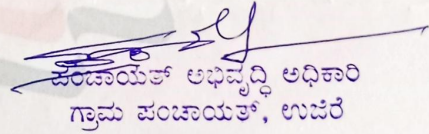 ಪಂಚಾಯತ್ ಅಭಿವೃದ್ಧಿ ಅಧಿಕಾರಿ
ಗ್ರಾಮ ಪಂಚಾಯತ್, ಉಜಿರೆ